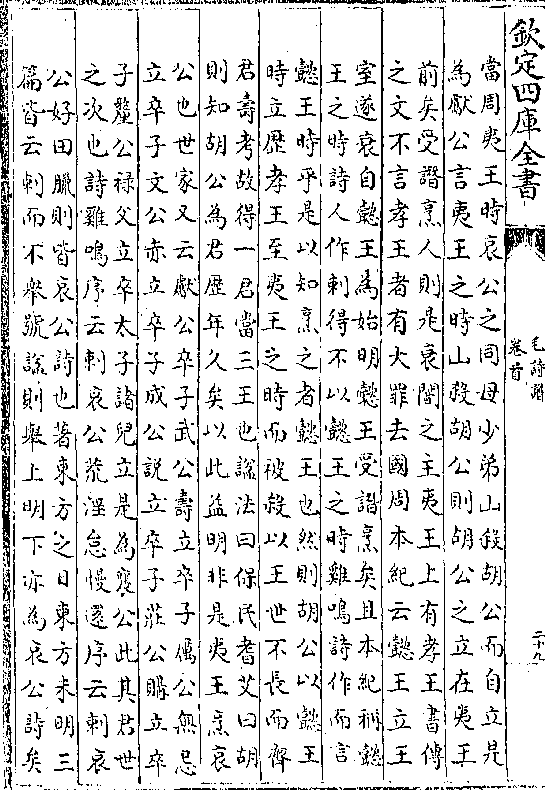 欽定四庫全書
毛詩譜
卷首
二十九
當周夷王時哀公之同母少弟山殺胡公而自立是
為獻公言夷王之時山殺胡公則胡公之立在夷王
前矣受譖烹人則是衰闇之主夷王上有孝王書傳
之文不言孝王者有大罪去國周本紀云懿王立王
室遂衰自懿王為始明懿王受譖烹矣且本紀稱懿
王之時詩人作刺得不以懿王之時雞鳴詩作而言
懿王時乎是以知烹之者懿王也然則胡公以懿王
時立歴孝王至夷王之時而被殺以王世不長而齊
君壽考故得一君當三王也諡法曰保民耆艾曰胡
則知胡公為君歴年久矣以此益明非是夷王烹哀
公也世家又云獻公卒子武公壽立卒子厲公無忌
立卒子文公赤立卒子成公説立卒子莊公購立卒
子釐公祿父立卒太子諸兒立是為襄公此其君世
之次也詩雞鳴序云刺哀公荒淫怠慢還序云刺哀
公好田臘則皆哀公詩也著東方之日東方未明三
篇皆云刺而不舉號諡則舉上明下亦為哀公詩矣